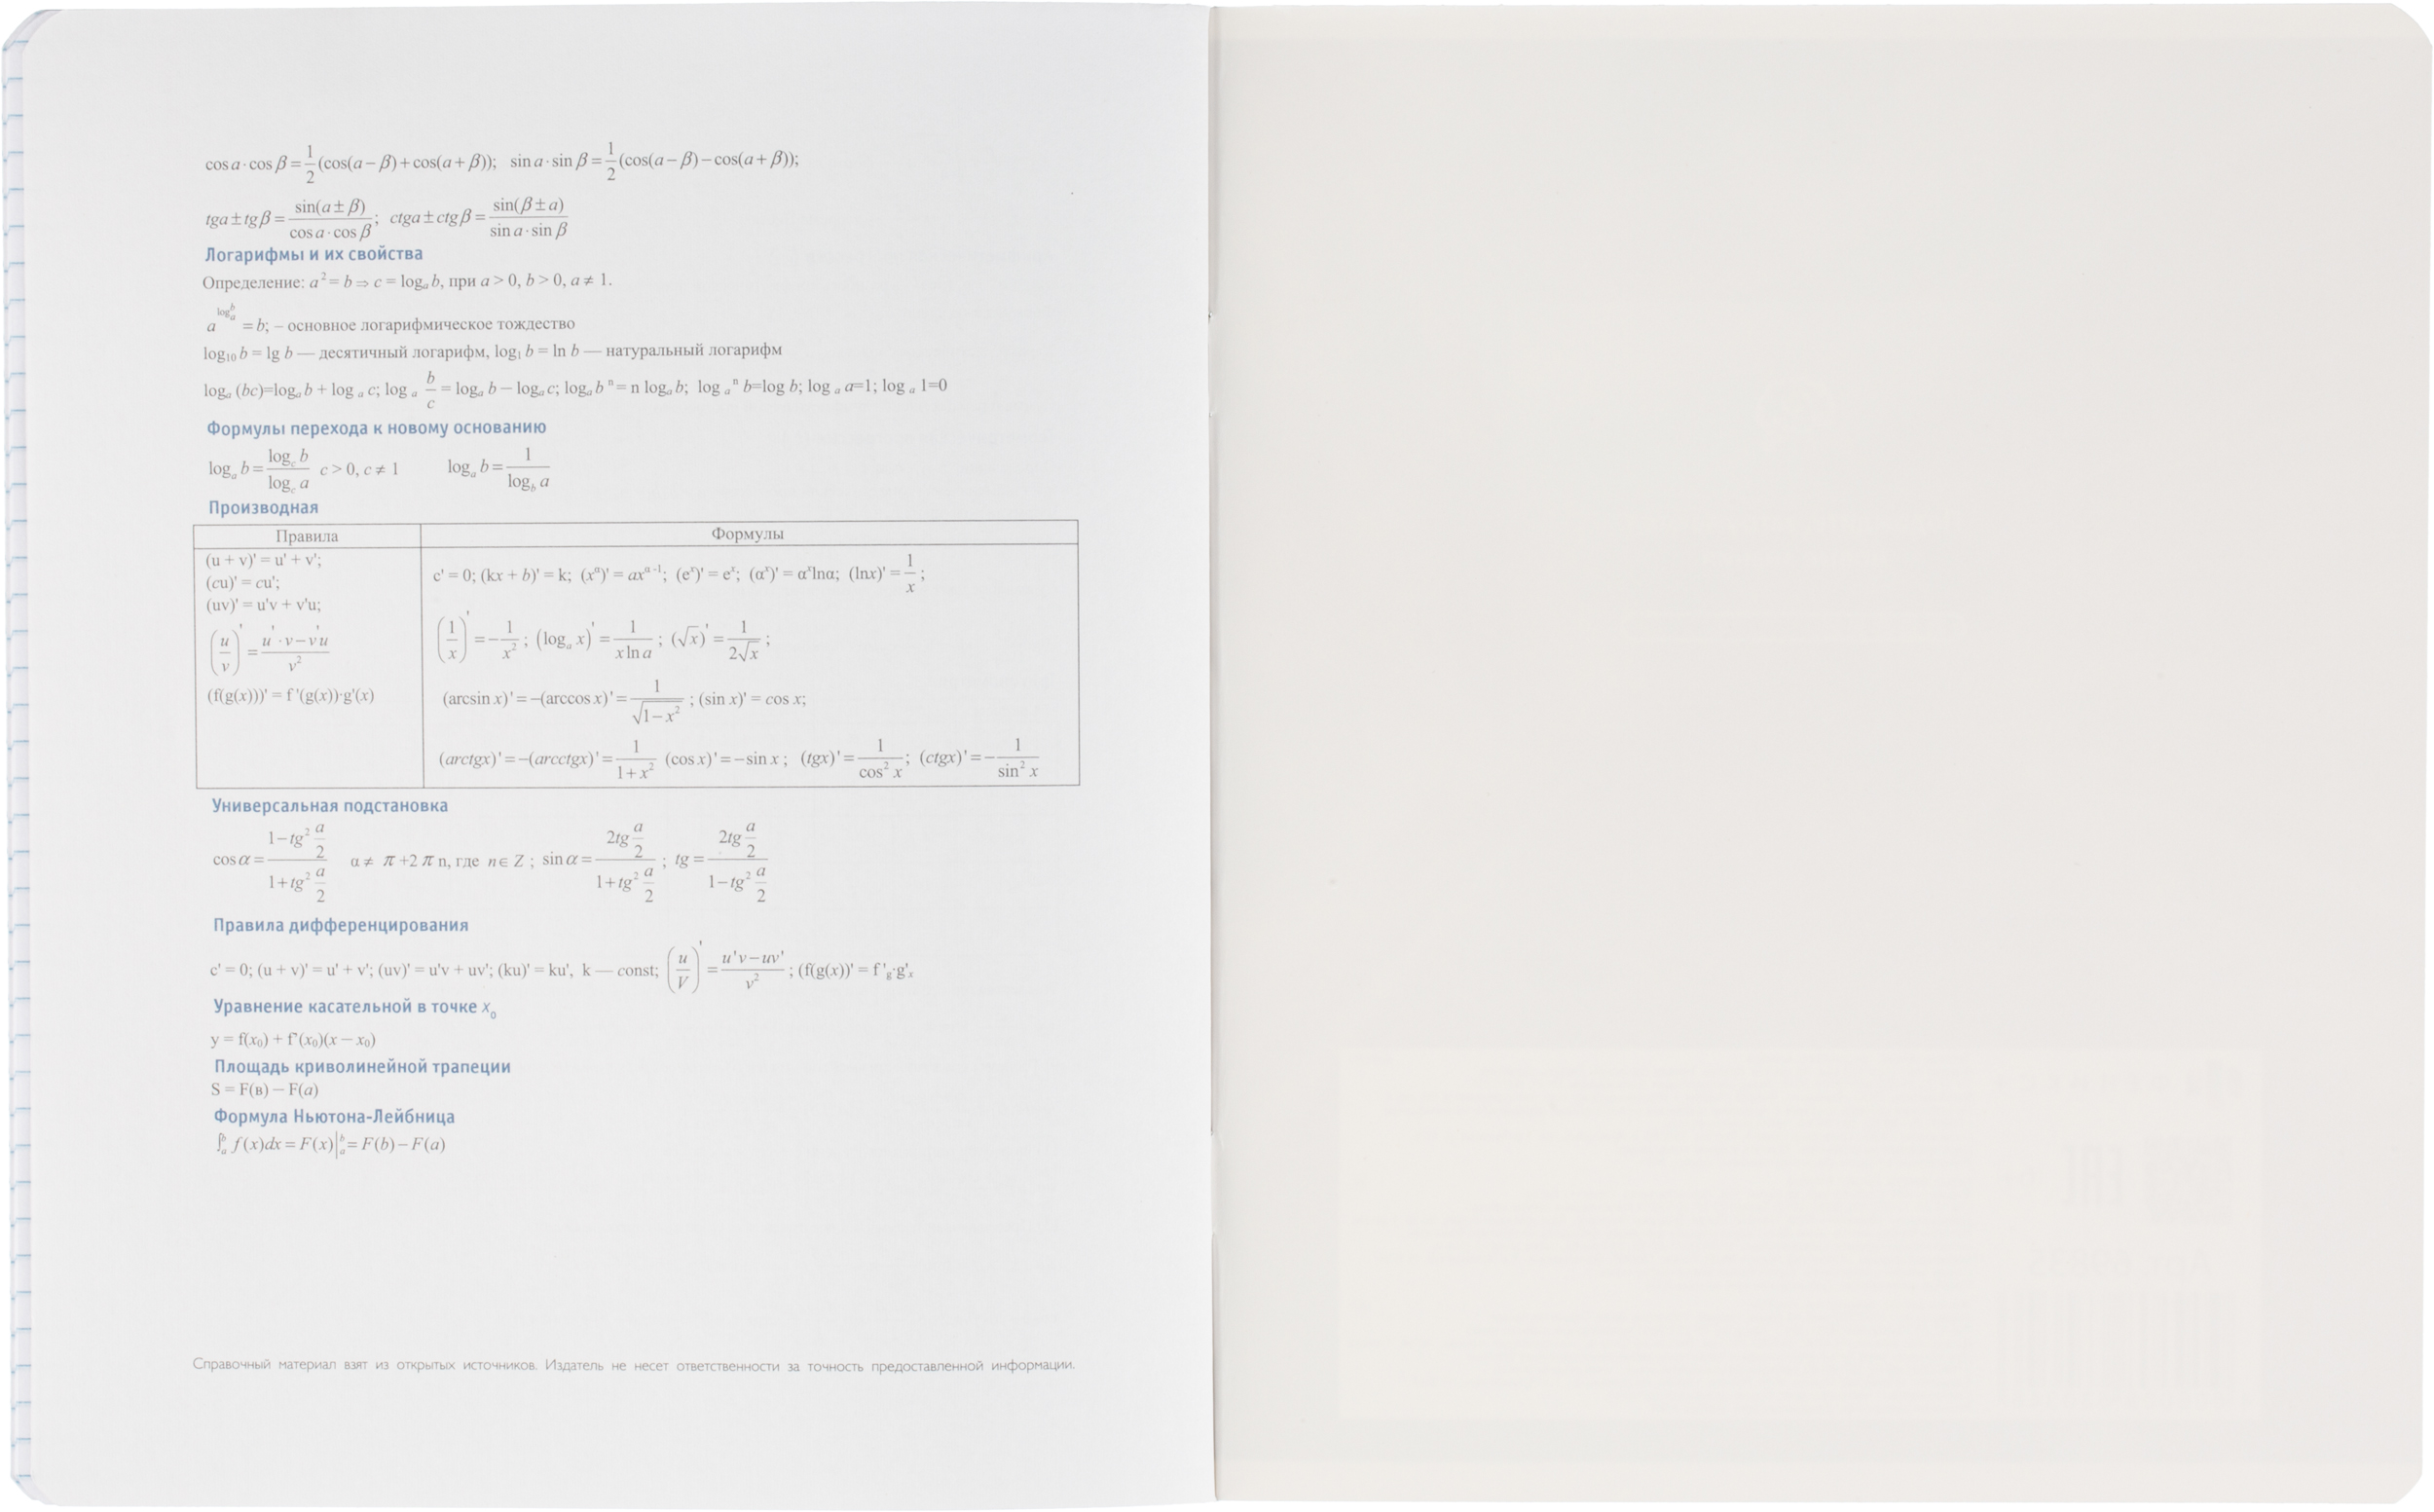 cos a · cos β = 1/2 (cos(a − β) + cos(a + β)); sin a · sin β = 1/2 (cos(a − β) − cos(a + β));
tga ± tgβ = sin(a ± β)/cos a · cos β; ctga ± ctgβ = sin(β ± a)/sin a · sin β
Логарифмы и их свойства
Определение: a² = b ⇒ c = logₐ b, при a > 0, b > 0, a ≠ 1.
a^(log_a^b) = b; – основное логарифмическое тождество
log₁₀ b = lg b — десятичный логарифм, log₁ b = ln b — натуральный логарифм
logₐ (bc)=logₐ b + log ₐ c; log ₐ b/c = logₐ b − logₐ c; logₐ b ⁿ = n logₐ b; log ₐ ⁿ b=log b; log ₐ a=1; log ₐ 1=0
Формулы перехода к новому основанию
logₐ b = log_c b/log_c a c > 0, c ≠ 1 logₐ b = 1/log_b a
Производная
Правила Формулы
(u + v)' = u' + v';
(cu)' = cu';
(uv)' = u'v + v'u;
(u/v)' = u' · v − v'u/v²
(f(g(x)))' = f '(g(x))·g'(x)
c' = 0; (kx + b)' = k; (xᵅ)' = axᵅ⁻¹; (eˣ)' = eˣ; (αˣ)' = αˣlnα; (lnx)' = 1/x;
(1/x)' = −1/x²; (logₐ x)' = 1/x ln a; (√x)' = 1/2√x;
(arcsin x)' = −(arccos x)' = 1/√1−x²; (sin x)' = cos x;
(arctgx)' = −(arcctgx)' = 1/1+x² (cos x)' = −sin x; (tgx)' = 1/cos² x; (ctgx)' = −1/sin² x
Универсальная подстановка
cos α = 1−tg² a/2 / 1+tg² a/2 α ≠ π +2 π n, где n ∈ Z; sin α = 2tg a/2 / 1+tg² a/2; tg = 2tg a/2 / 1−tg² a/2
Правила дифференцирования
c' = 0; (u + v)' = u' + v'; (uv)' = u'v + uv'; (ku)' = ku', k — const; (u/V)' = u'v−uv'/v²; (f(g(x))' = f '_g·g'ₓ
Уравнение касательной в точке x₀
y = f(x₀) + f'(x₀)(x − x₀)
Площадь криволинейной трапеции
S = F(в) − F(a)
Формула Ньютона-Лейбница
∫ₐᵇ f(x)dx = F(x)|ₐᵇ = F(b) − F(a)
Справочный материал взят из открытых источников. Издатель не несет ответственности за точность предоставленной информации.